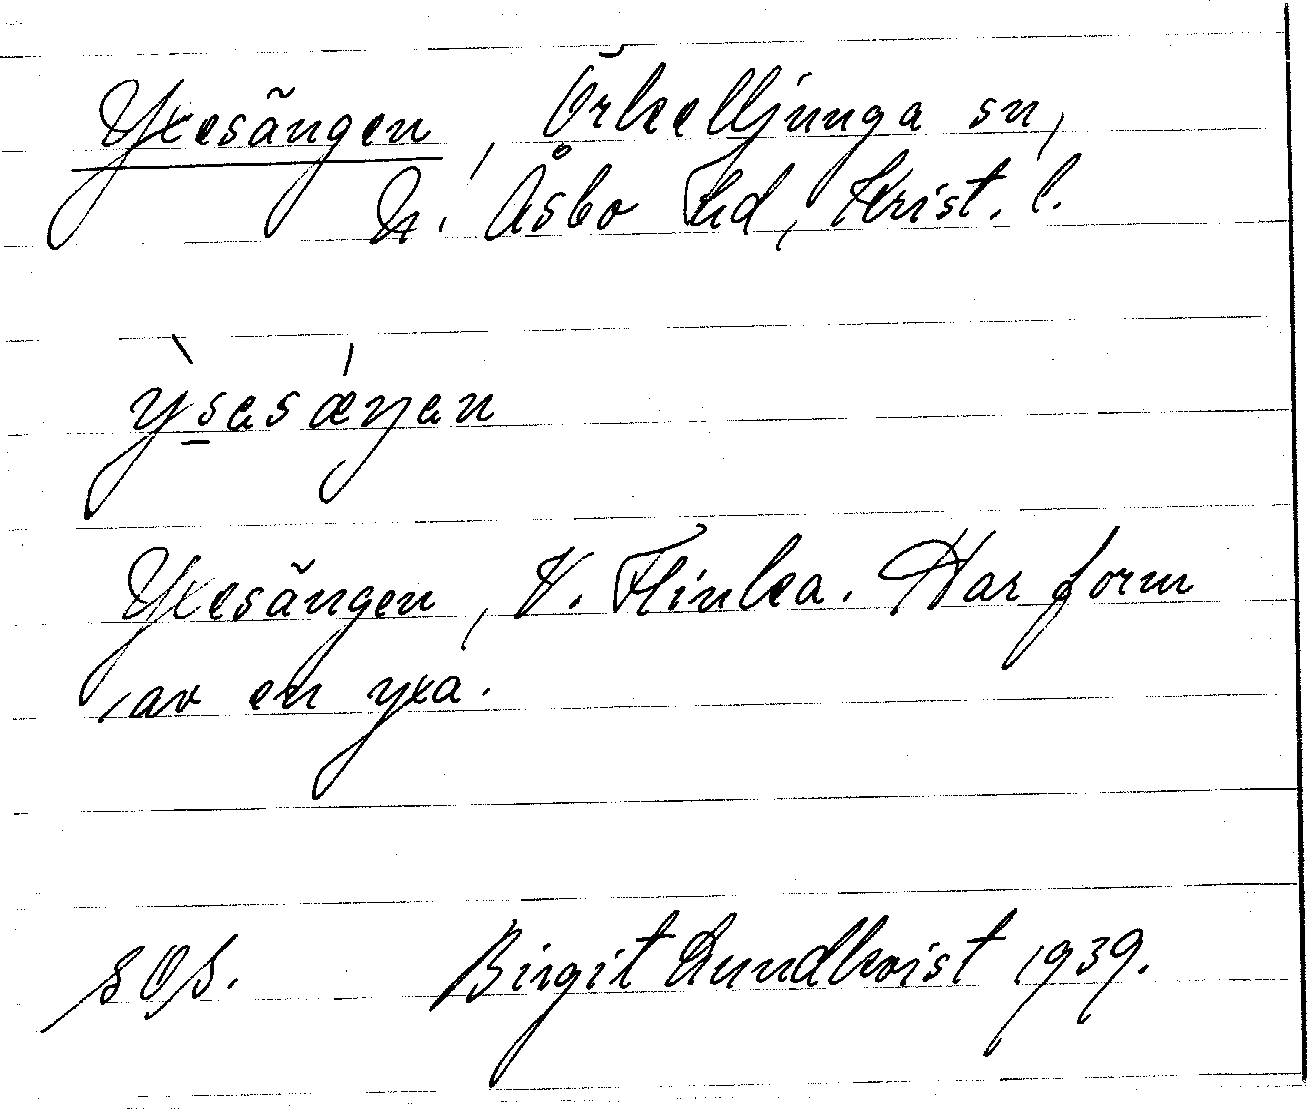 Yxesängen, Örkelljunga sn,
N. Åsbo hd, Krist. l.
ỳsesǽŋen
Yxesängen, V. Flinka. Har form
av en yxa.
SOS. Birgit Lundkvist 1939.